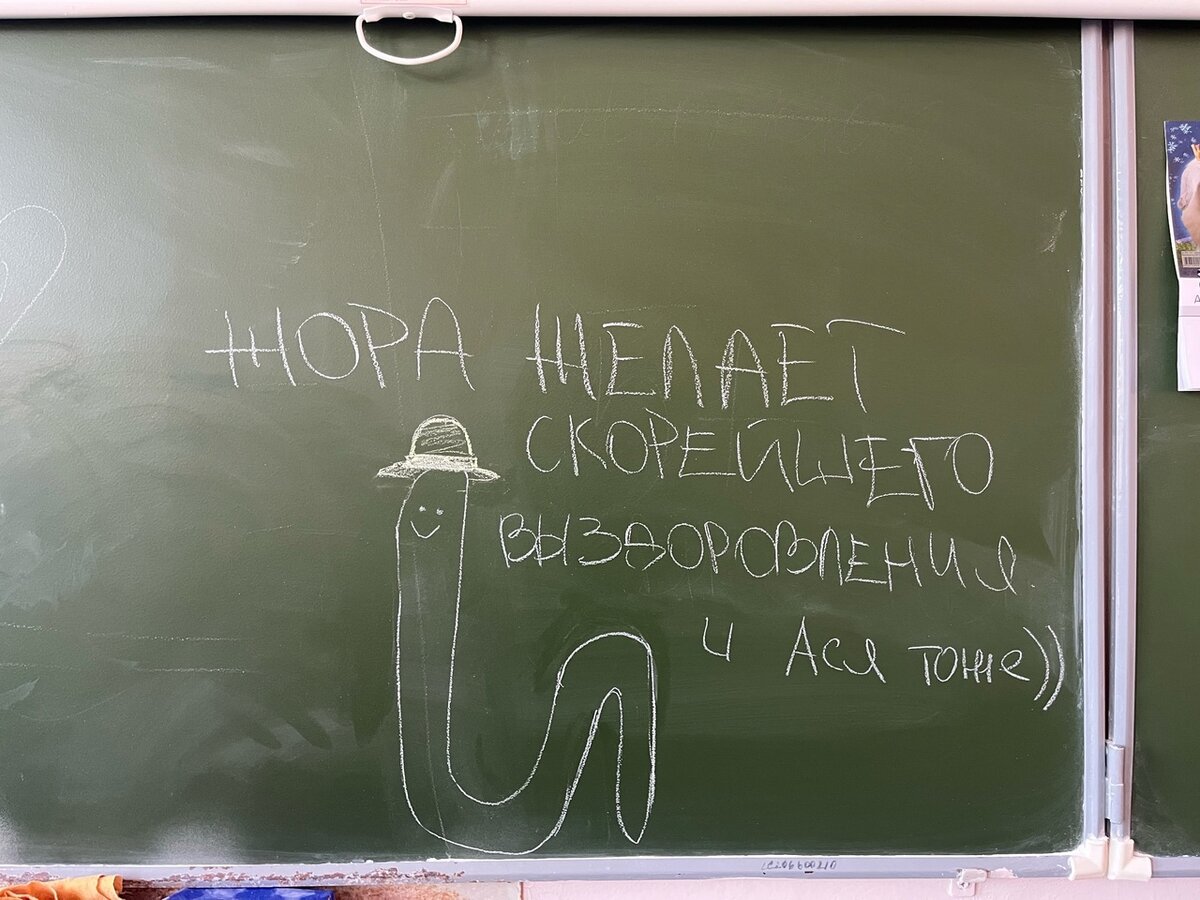 ЖОРА ЖЕЛАЕТ
СКОРЕЙШЕГО
ВЫЗДОРОВЛЕНИЯ
И АСЯ ТОЖЕ))